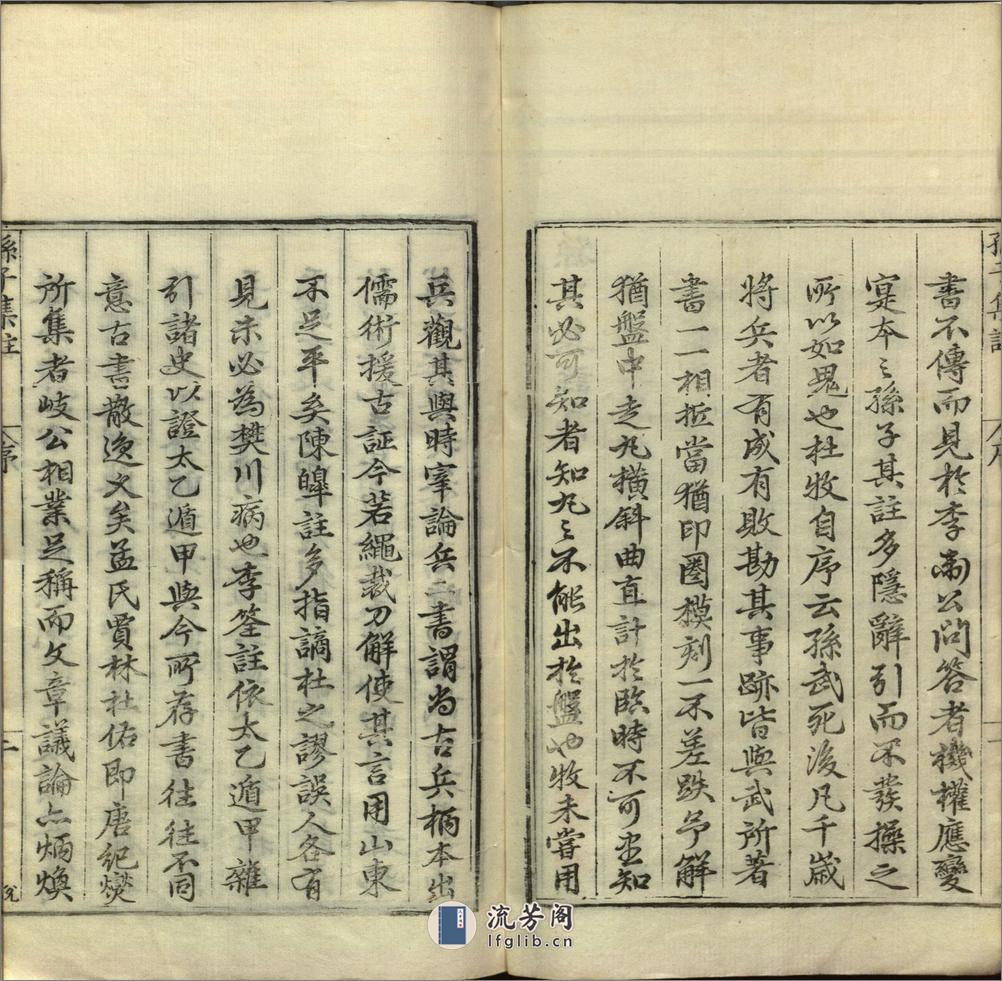 書不傳而見於李衛公問答者機權應變
寔本之孫子其註多隱辭引而不發操之
所以如鬼也杜牧自序云孫武死後凡千歲
將兵者有成有敗勘其事跡皆與武所著
書一一相抵當猶印圈模刻一不差跌予解
猶盤中走丸橫斜曲直計於臨時不可盡知
其必可知者知丸之不能出於盤也牧未嘗用
兵觀其與時宰論兵二書謂為古兵柄本出
儒術援古証今若繩裁刀解使其言用山東
不足平矣陳皥註多指謫杜之謬誤人各有
見未必為樊川病也李筌註依太乙遁甲雜
引諸史以證太乙遁甲與今所存書往往不同
意古書散逸久矣孟氏賈林杜佑即唐紀燮
所集者岐公相業足稱而文章議論亦炳煥
孫子集註
序
二
流芳阁
lfglib.cn